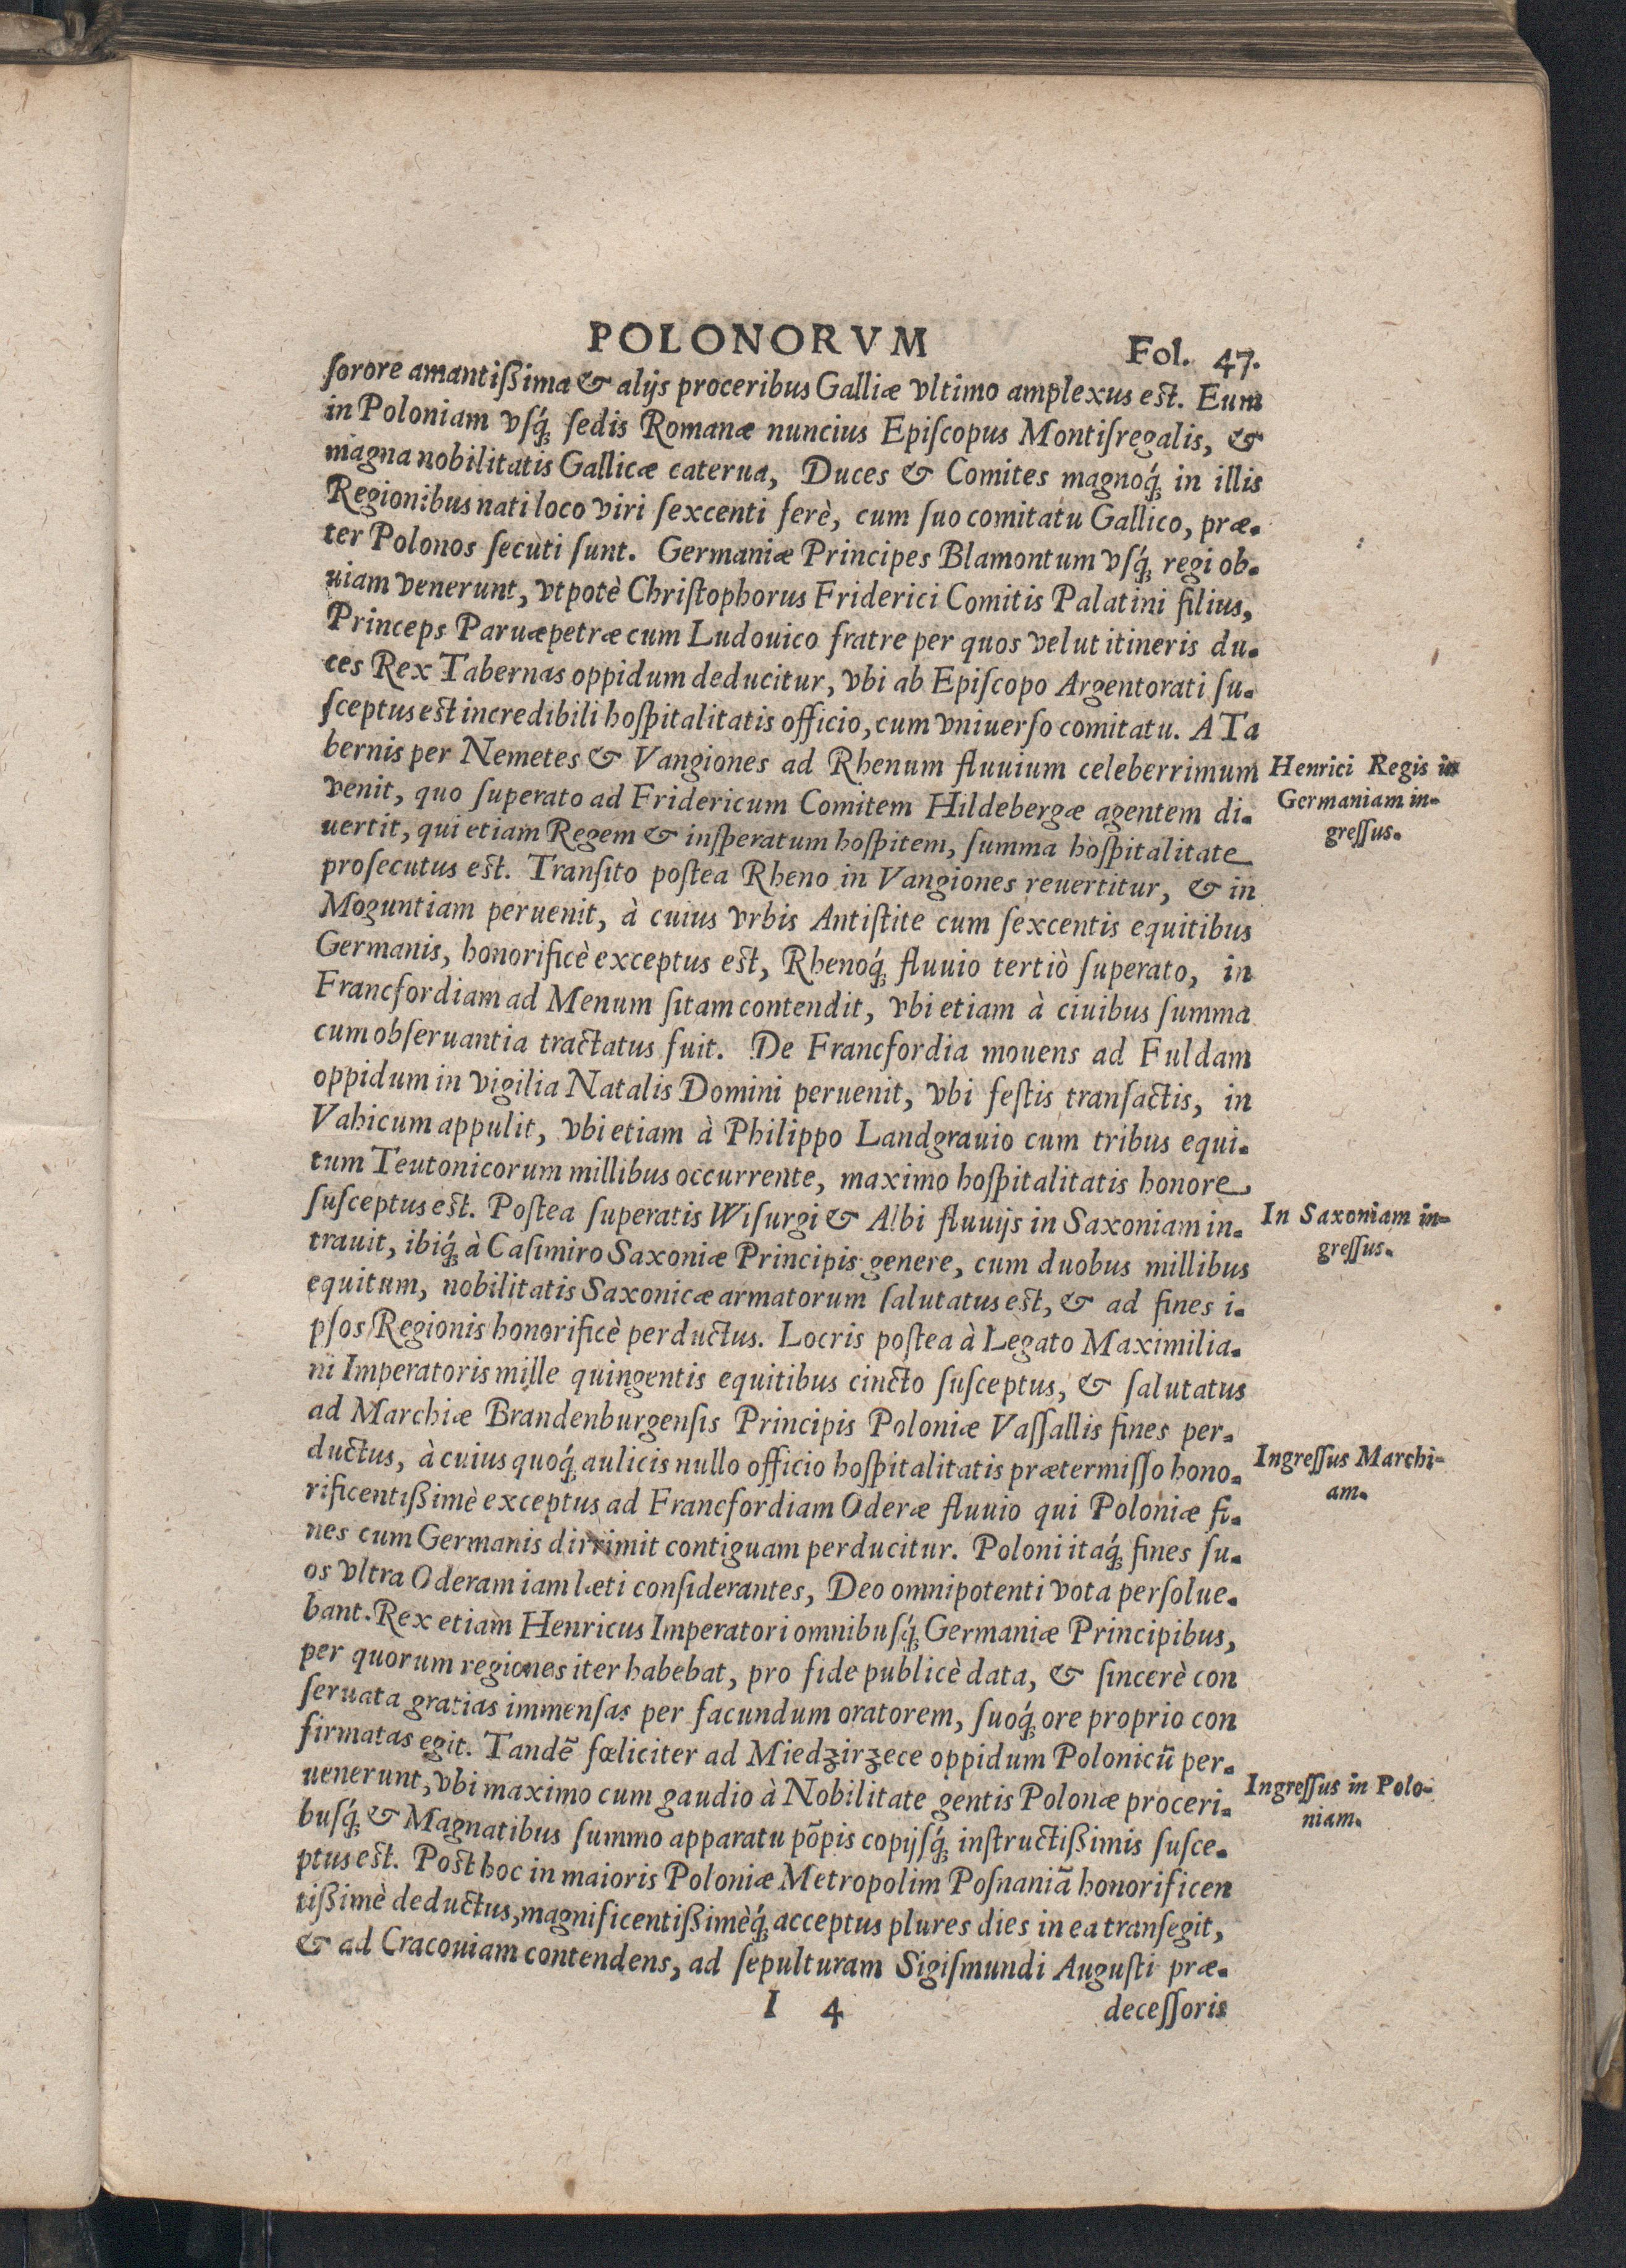 POLONORVM Fol. 47.
ſorore amantißima & alijs proceribus Galliæ vltimo amplexus est. Eum
in Poloniam vſq́; ſedis Romanæ nuncius Epiſcopus Montiſregalis, &
magna nobilitatis Gallicæ caterua, Duces & Comites magnoq́; in illis
Regionibus nati loco viri ſexcenti ferè, cum ſuo comitatu Gallico, præ-
ter Polonos ſecuti ſunt. Germaniæ Principes Blamontum vſq́; regi ob-
uiam venerunt, vtpotè Chriſtophorus Friderici Comitis Palatini filius,
Princeps Paruæpetræ cum Ludouico fratre per quos velut itineris du-
ces Rex Tabernas oppidum deducitur, vbi ab Epiſcopo Argentorati ſu-
ſceptus est incredibili hoſpitalitatis officio, cum vniuerſo comitatu. A Ta
bernis per Nemetes & Vangiones ad Rhenum fluuium celeberrimum
venit, quo ſuperato ad Fridericum Comitem Hildebergæ agentem di-
uertit, qui etiam Regem & inſperatum hoſpitem, ſumma hoſpitalitate
proſecutus est. Tranſito poſtea Rheno in Vangiones reuertitur, & in
Moguntiam peruenit, à cuius vrbis Antiſtite cum ſexcentis equitibus
Germanis, honorificè exceptus est, Rhenoq́; fluuio tertiò ſuperato, in
Francfordiam ad Menum ſitam contendit, vbi etiam à ciuibus ſumma
cum obſeruantia tractatus fuit. De Francfordia mouens ad Fuldam
oppidum in vigilia Natalis Domini peruenit, vbi feſtis tranſactis, in
Vahicum appulit, vbi etiam à Philippo Landgrauio cum tribus equi-
tum Teutonicorum millibus occurrente, maximo hoſpitalitatis honore
ſuſceptus est. Poſtea ſuperatis Wiſurgi & Albi fluuijs in Saxoniam in-
trauit, ibiq́; à Caſimiro Saxoniæ Principis genere, cum duobus millibus
equitum, nobilitatis Saxonicæ armatorum ſalutatus est, & ad fines i-
pſos Regionis honorificè perductus. Locris poſtea à Legato Maximilia-
ni Imperatoris mille quingentis equitibus cincto ſuſceptus, & ſalutatus
ad Marchiæ Brandenburgenſis Principis Poloniæ Vaſſallis fines per-
ductus, à cuius quoq́; aulicis nullo officio hoſpitalitatis prætermiſſo hono-
rificentißimè exceptus ad Francfordiam Oderæ fluuio qui Poloniæ fi-
nes cum Germanis dirrimit contiguam perducitur. Poloni itaq́; fines ſu-
os vltra Oderam iam læti conſiderantes, Deo omnipotenti vota perſolue-
bant. Rex etiam Henricus Imperatori omnibuſq́; Germaniæ Principibus,
per quorum regiones iter habebat, pro fide publicè data, & ſincerè con
ſeruata gratias immenſas per facundum oratorem, ſuoq́; ore proprio con
firmatas egit. Tandẽ fœliciter ad Miedzirzece oppidum Polonicũ per-
uenerunt, vbi maximo cum gaudio à Nobilitate gentis Polonæ proceri-
buſq́; & Magnatibus ſummo apparatu põpis copijſq́; inſtructißimis ſuſce-
ptus est. Post hoc in maioris Poloniæ Metropolim Poſnaniã honorificen
tißimè deductus, magnificentißimèq́; acceptus plures dies in ea tranſegit,
& ad Cracouiam contendens, ad ſepulturam Sigiſmundi Auguſti præ-
I 4 deceſſoris
Henrici Regis in
Germaniam in-
greſſus.
In Saxoniam in-
greſſus.
Ingreſſus Marchi-
am.
Ingreſſus in Polo-
niam.